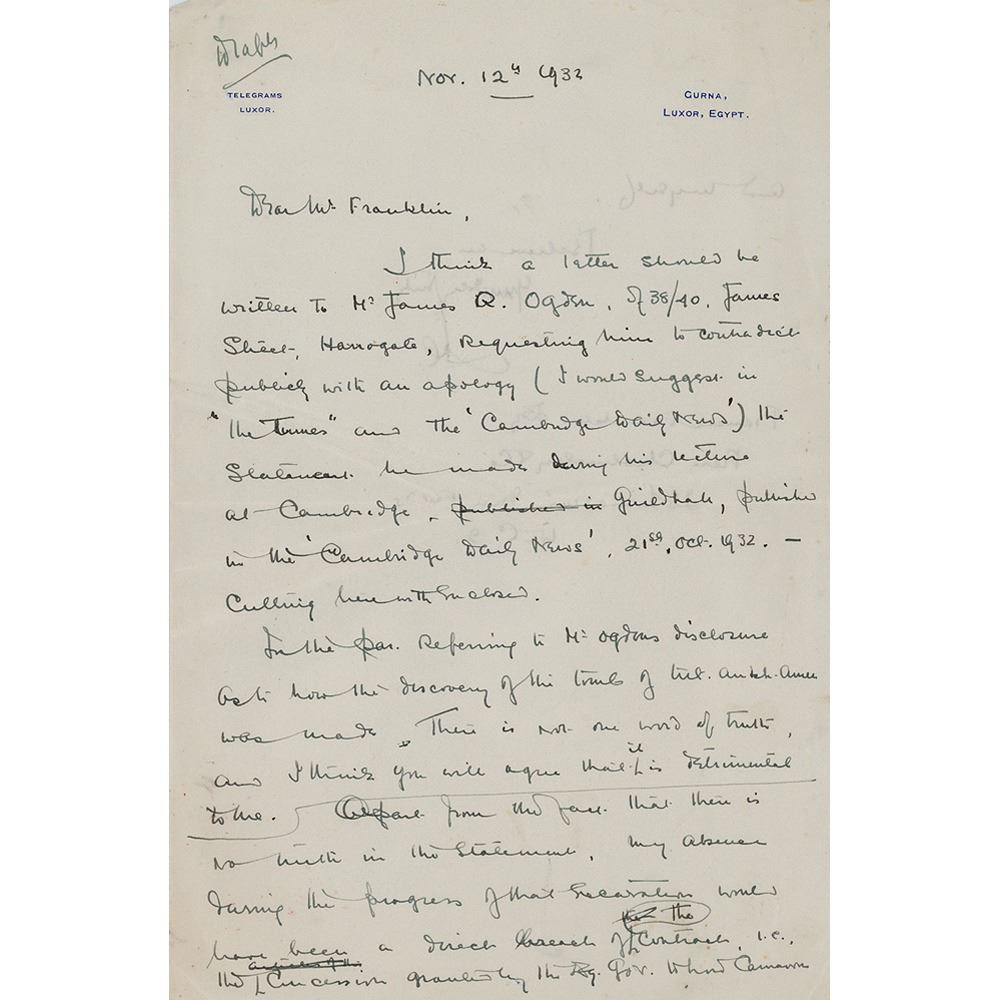 Draft
Nov. 12th 1932
TELEGRAMS
LUXOR.
GURNA,
LUXOR, EGYPT.
Dear Mr Franklin,
I think a letter should be
written to Mr James R. Ogden, of 38/40, James
Street, Harrogate, requesting him to contradict
publicly with an apology (I would suggest in
"The Times" and the 'Cambridge Daily News') the
Statement he made during his lecture
at Cambridge, published in Guildhall, published
in the 'Cambridge Daily News', 21st, Oct. 1932. —
Cutting herewith Enclosed.
In the par. referring to Mr Ogdens disclosure
as to how the discovery of the tomb of Tut.ankh.Amen
was made, There is not one word of truth,
and I think you will agree that it is detrimental
to me. Apart from the fact that there is
no truth in the Statement, my absence
during the progress of that Excavation would
have been a direct breach of the Contract, i.e.,
the articles of the Concession granted by the Eg. Gov. to Lord Carnarvon